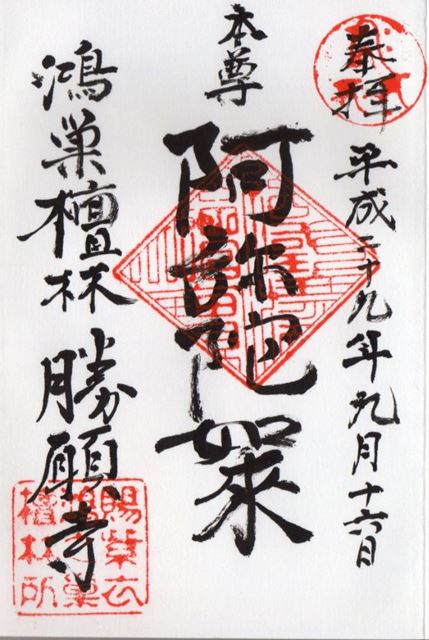 奉拝
平成二十九年九月十六日
本尊
阿弥陀如来
鴻巣檀林 勝願寺
賜紫衣
鴻巣
檀林所